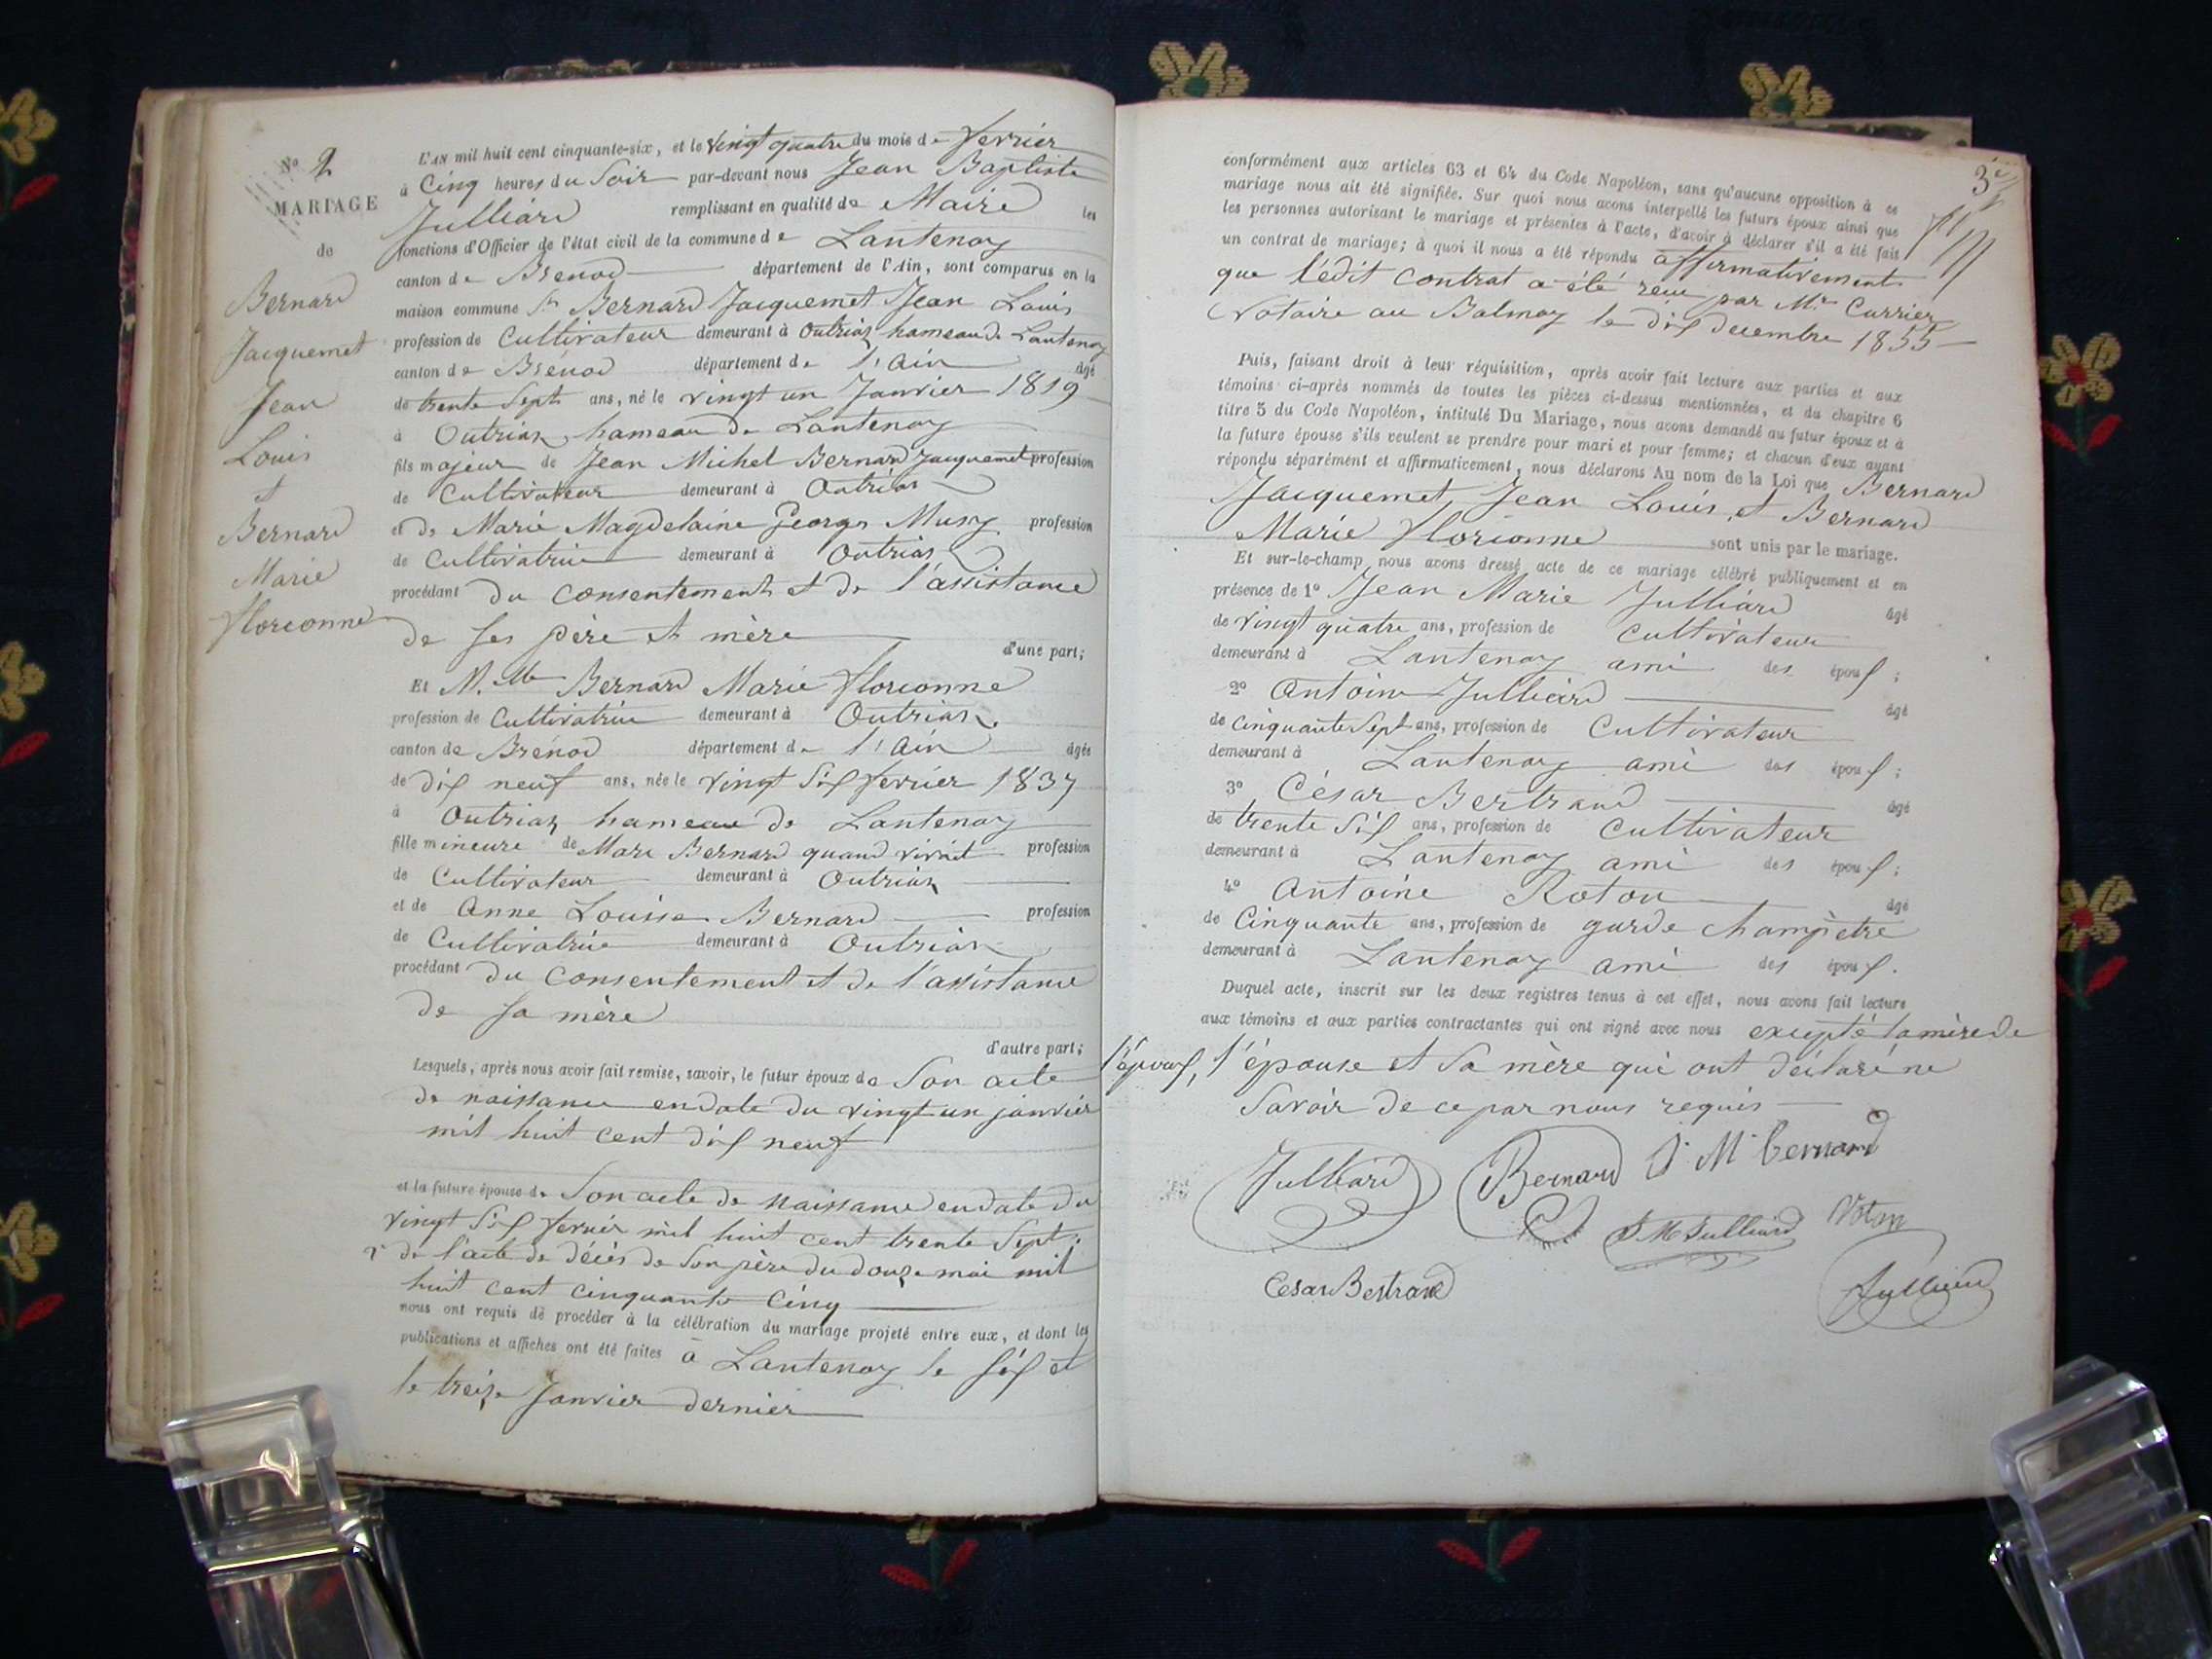 N° 2
MARIAGE
de
Bernard
Jacquemet
Jean
Louis
et
Bernard
Marie
florionne
L'AN mil huit cent cinquante-six, et le vingt quatre du mois de fevrier
à Cinq heures du Soir par-devant nous Jean Baptiste
Julliard remplissant en qualité de Maire les
fonctions d'Officier de l'état civil de la commune de Lantenay
canton de Brénod département de l'Ain, sont comparus en la
maison commune Sr Bernard Jacquemet Jean Louis
profession de Cultivateur demeurant à Outriaz hameau de Lantenay
canton de Brénod département de l'Ain âgé
de trente Sept ans, né le vingt un Janvier 1819
à Outriaz hameau de Lantenay
fils majeur de Jean Michel Bernard Jacquemet profession
de Cultivateur demeurant à Outriaz
et de Marie Magdelaine Georges Musy profession
de Cultivatrice demeurant à Outriaz
procédant du consentement et de l'assistance
de ses père et mère
d'une part;
Et M.lle Bernard Marie florionne
profession de Cultivatrice demeurant à Outriaz
canton de Brénod département de l'Ain âgée
de dix neuf ans, née le vingt Six fevrier 1837
à Outriaz hameau de Lantenay
fille mineure de Marc Bernard quand vivait profession
de Cultivateur demeurant à Outriaz
et de Anne Louise Bernard profession
de Cultivatrice demeurant à Outriaz
procédant du consentement et de l'assistance
de sa mère
d'autre part;
Lesquels, après nous avoir fait remise, savoir, le futur époux de Son acte
de naissance en date du vingt un janvier
mil huit cent dix neuf
et la future épouse de Son acte de naissance en date du
vingt Six fevrier mil huit cent trente Sept;
2° de l'acte de décès de Son père du douze mai mil
huit cent cinquante Cinq
nous ont requis de procéder à la célébration du mariage projeté entre eux, et dont les
publications et affiches ont été faites à Lantenay le Six et
le treize Janvier dernier
3e
conformément aux articles 63 et 64 du Code Napoléon, sans qu'aucune opposition à ce
mariage nous ait été signifiée. Sur quoi nous avons interpellé les futurs époux ainsi que
les personnes autorisant le mariage et présentes à l'acte, d'avoir à déclarer s'il a été fait
un contrat de mariage; à quoi il nous a été répondu affirmativement
que ledit contrat a été reçu par Mr. Carrier
Notaire au Balmay le dix decembre 1855
Puis, faisant droit à leur réquisition, après avoir fait lecture aux parties et aux
témoins ci-après nommés de toutes les pièces ci-dessus mentionnées, et du chapitre 6
titre 5 du Code Napoléon, intitulé Du Mariage, nous avons demandé au futur époux et à
la future épouse s'ils veulent se prendre pour mari et pour femme; et chacun d'eux ayant
répondu séparément et affirmativement, nous déclarons Au nom de la Loi que Bernard
Jacquemet, Jean Louis, et Bernard
Marie florionne sont unis par le mariage.
Et sur-le-champ nous avons dressé acte de ce mariage célébré publiquement et en
présence de 1° Jean Marie Julliard âgé
de vingt quatre ans, profession de cultivateur
demeurant à Lantenay ami des époux;
2° Antoine Julliard âgé
de cinquante Sept ans, profession de Cultivateur
demeurant à Lantenay ami des époux;
3° César Bertrand âgé
de trente Six ans, profession de Cultivateur
demeurant à Lantenay ami des époux;
4° Antoine Roton âgé
de Cinquante ans, profession de garde champêtre
demeurant à Lantenay ami des époux.
Duquel acte, inscrit sur les deux registres tenus à cet effet, nous avons fait lecture
aux témoins et aux parties contractantes qui ont signé avec nous excepté la mère de
l'époux, l'épouse et Sa mère qui ont déclaré ne
Savoir de ce par nous requis
Julliard Bernard J. M. bernard
J. M. Julliard Roton
Cesar Bertrand Julliard